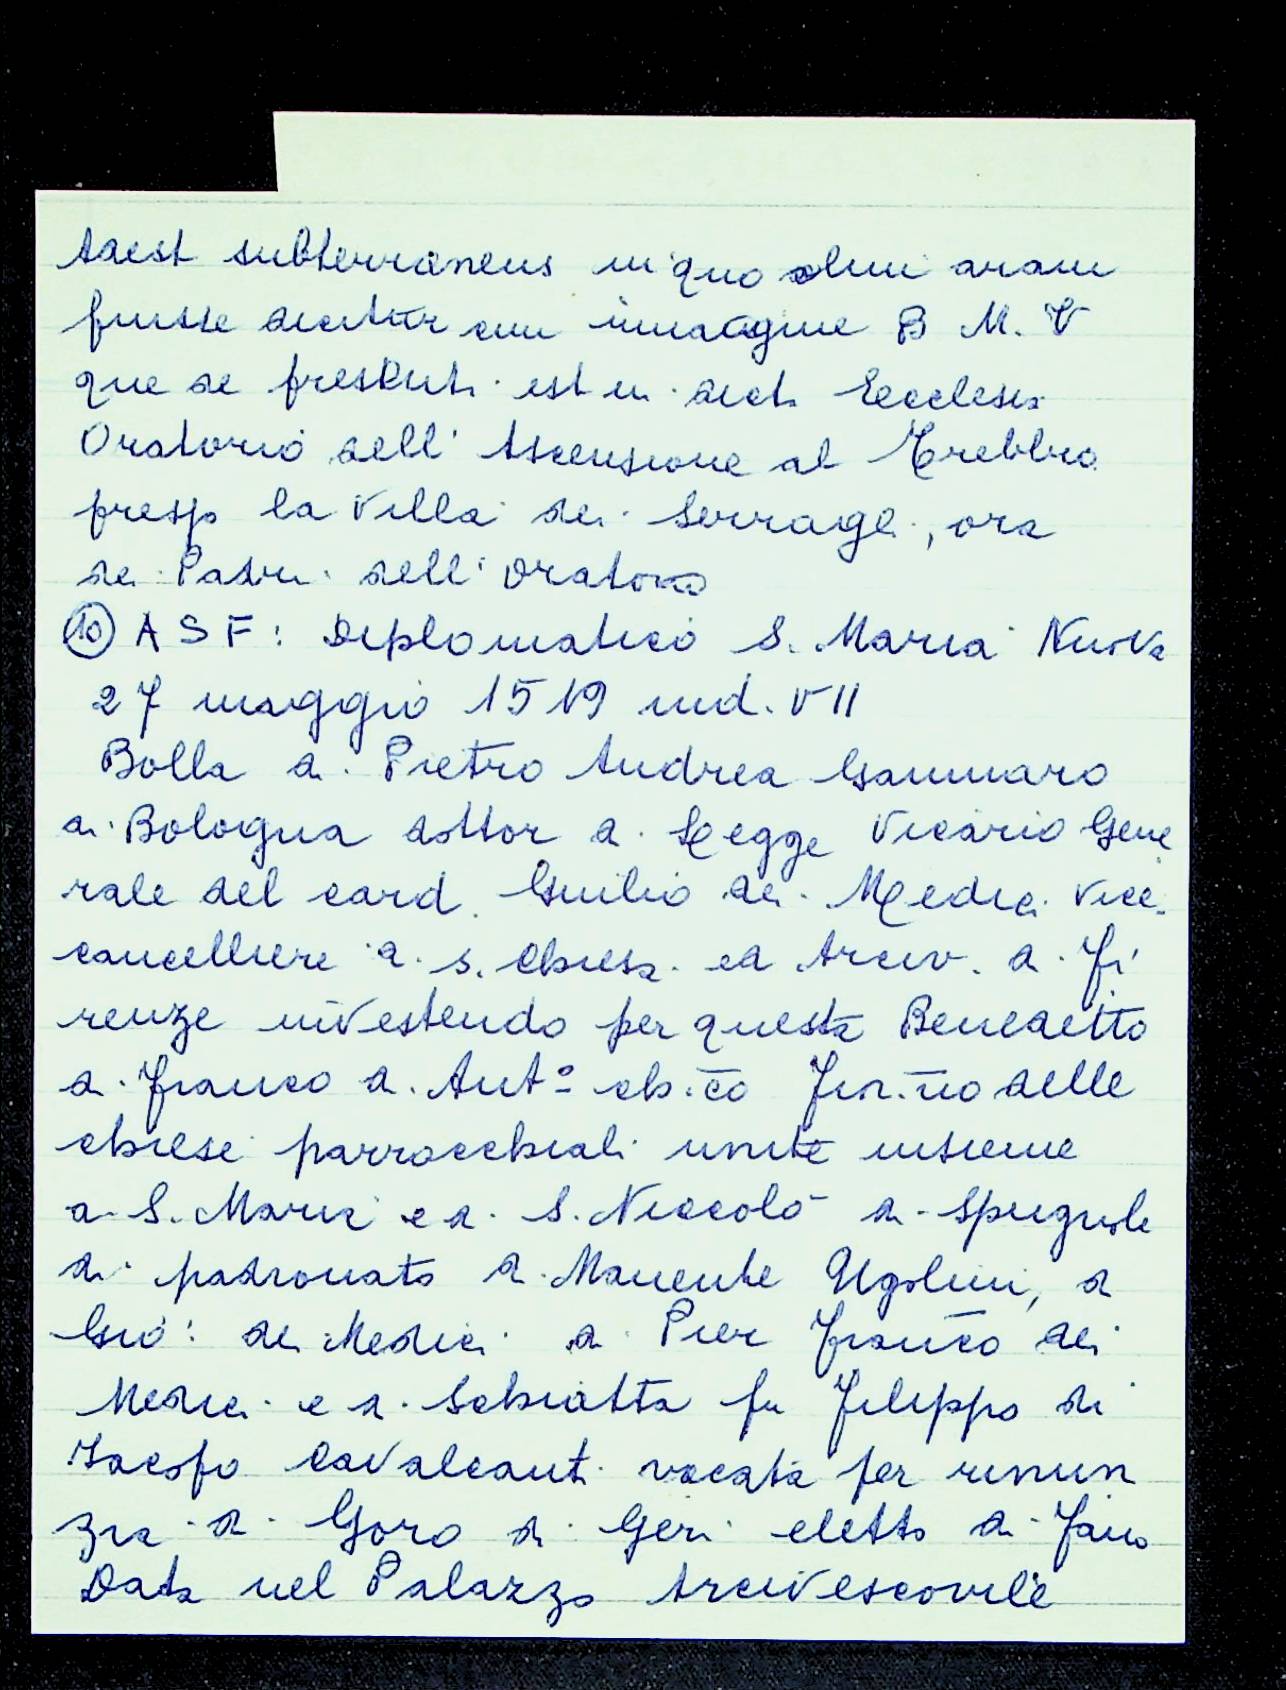 adest subterraneus in quo olim aram
fuisse dicitur cum immagine B M. V
que de presenti est in dicta Ecclesia
Oratorio dell' Ascensione al Trebbio
presso la Villa dei Serragli, ora
dei Padri dell' Oratorio
⑩ A S F: Diplomatico S. Maria Nuova
27 maggio 1519 ind. VII
Bolla di Pietro Andrea Gammaro
di Bologna dottor di Legge Vicario Gene
rale del card. Giulio dei Medici Vice-
cancelliere di S. Chiesa ed Arciv. di Fi
renze investendo per questa Benedetto
di Franco di Ant.º ch.co Fior.no delle
chiese parrocchiali unite insieme
di S. Maria e di S. Niccolò di Spugnole
di padronato di Manente Ugolini, di
Gio: dei Medici di Pier Franco dei
Medici e di Schiatta fu Filippo di
Iacopo Cavalcanti vacata per rinun
zia di Goro di Geri eletto di Fano
Data nel Palazzo Arcivescovile